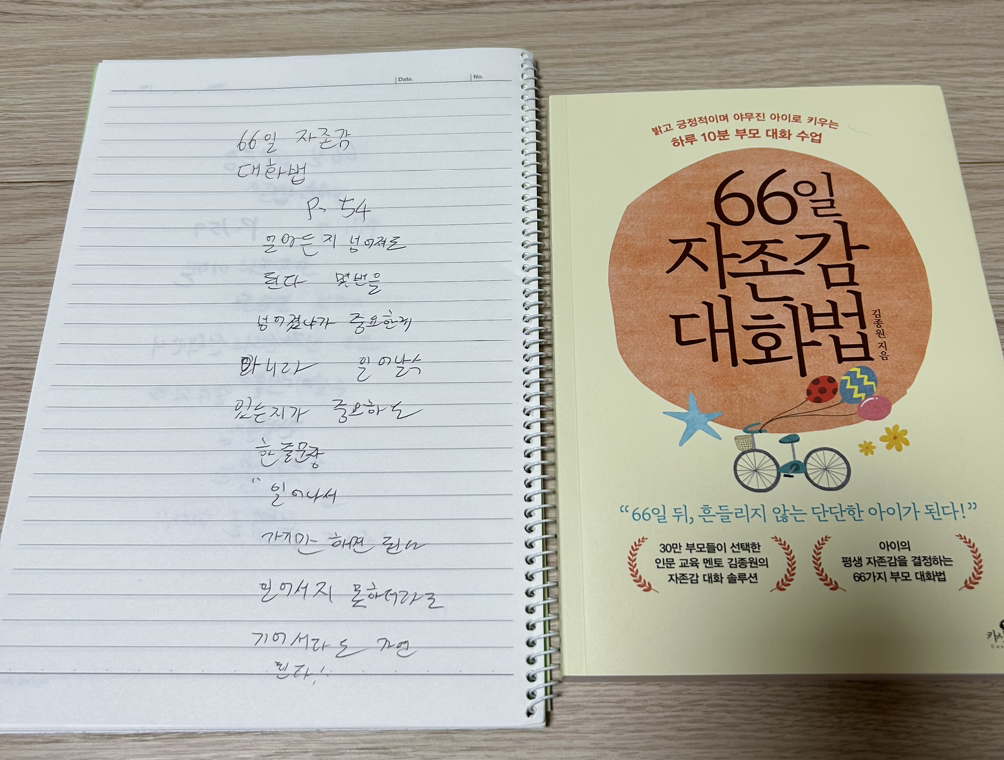 Date.
No.
66일 자존감
대화법
P. 54
넘어져도
된다 몇번을
넘어졌냐가 중요한게
아니라 일어날수
있는지가 중요하는
한 줄 문장
" 일어나서
가기만 하면 된다
일어서지 못하더라도
기어서라도 가면
된다!
밝고 긍정적이며 야무진 아이로 키우는
하루 10분 부모 대화 수업
66일
자존감
대화법
김종원 지음
“66일 뒤, 흔들리지 않는 단단한 아이가 된다!”
30만 부모들이 선택한
인문 교육 멘토 김종원의
자존감 대화 솔루션
아이의
평생 자존감을 결정하는
66가지 부모 대화법